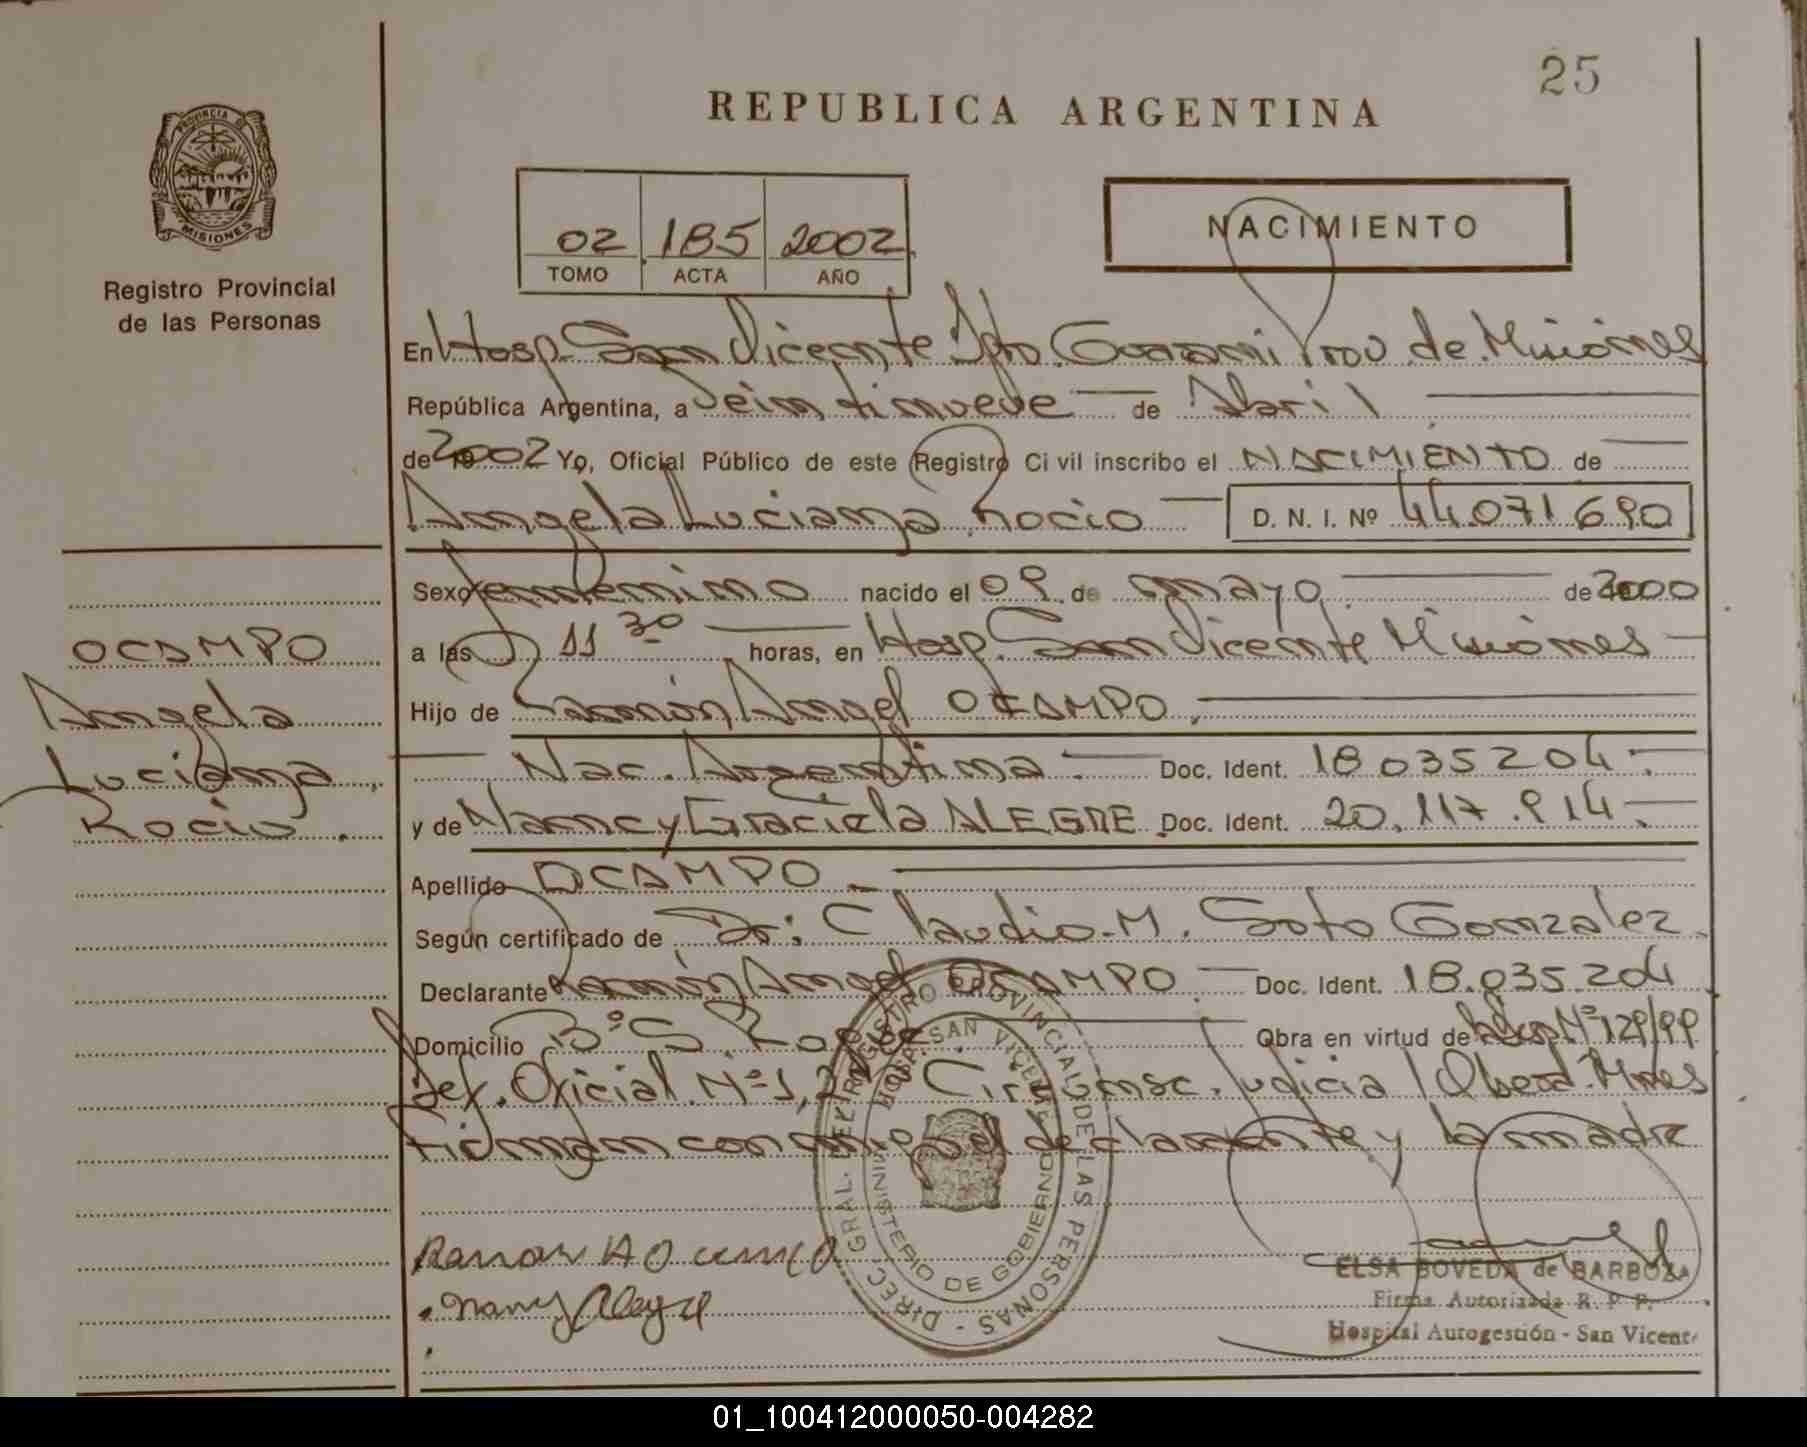 25
REPUBLICA ARGENTINA
PROVINCIA DE MISIONES
Registro Provincial
de las Personas
02 185 2002
TOMO ACTA AÑO
NACIMIENTO
En Hosp. San Vicente Dpto. Guarani Prov. de Misiones
República Argentina, a Veintinueve de Abril
de 2002 Yo, Oficial Público de este Registro Civil inscribo el NACIMIENTO de
Angela Luciana Rocio D. N. I. Nº 44.071.690
Sexo femenino nacido el 09 de mayo de 2000
a las 11 30 horas, en Hosp. San Vicente Misiones
Hijo de Ramón Angel OCAMPO
Nac. Argentina Doc. Ident. 18.035.204
y de Nancy Graciela ALEGRE Doc. Ident. 20.117.914
Apellido OCAMPO
Según certificado de Dr: Claudio M. Soto Gonzalez
Declarante Ramón Angel OCAMPO Doc. Ident. 18.035.204
Domicilio Bº S. Roque Obra en virtud de Disp. Nº 129/99
Def. Oficial Nº 1, 2da Circunsc. Judicial Oberá Mnes
Firman conmigo el declarante y la madre
OCAMPO
Angela
Luciana
Rocio
Ramon A Ocampo
Nancy Alegre
DIREC. GRAL. DEL REGISTRO PROVINCIAL DE LAS PERSONAS
HOSP. SAN VICENTE
MINISTERIO DE GOBIERNO
ELSA BOVEDA de BARBOZA
Firma Autorizada R. P. P.
Hospital Autogestión - San Vicente
01_100412000050-004282